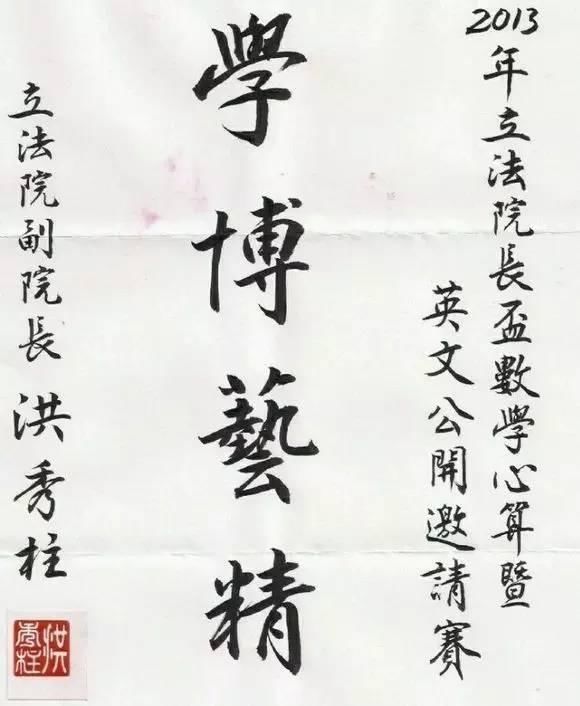 2013年立法院長盃數學心算暨
英文公開邀請賽
學博藝精
立法院副院長 洪秀柱
洪秀柱